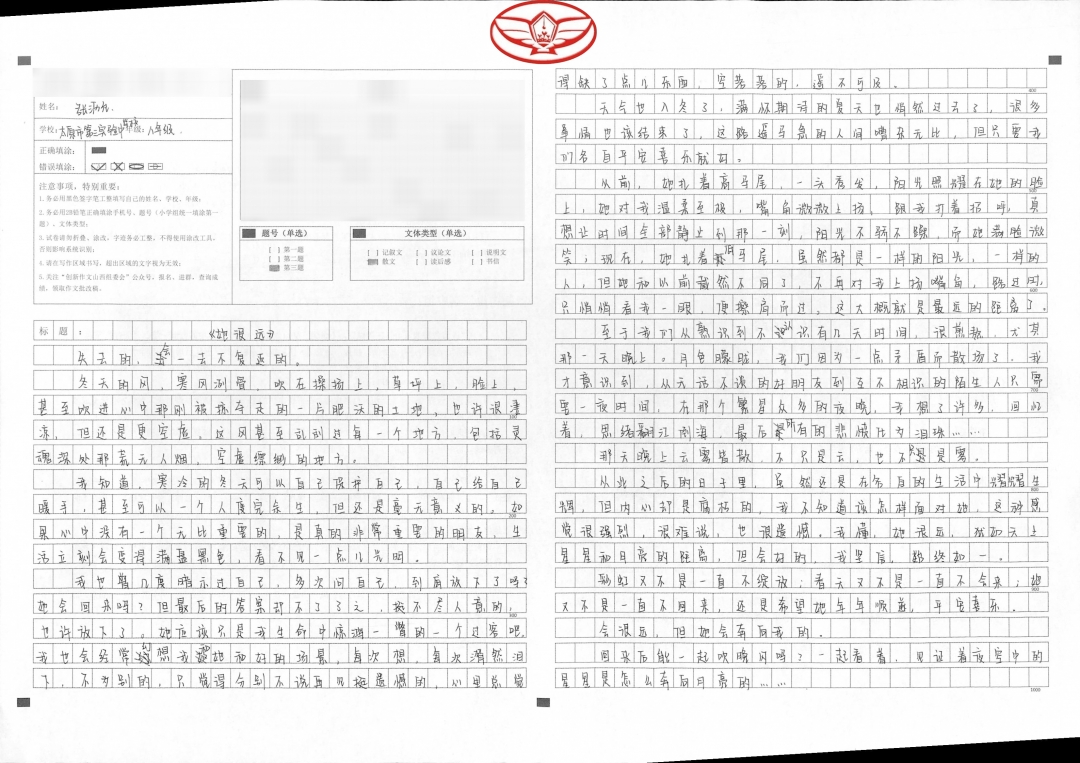 姓名：
学校：太原市第三实验中学校 年级：八年级．
正确填涂：
错误填涂：
注意事项，特别重要：
1.务必用黑色签字笔工整填写自己的姓名、学校、年级；
2.务必用2B铅笔正确填涂手机号、题号（小学组统一填涂第一题）、文体类型；
3.试卷请勿折叠、涂改，字迹务必工整。不得使用涂改工具，否则影响系统识别；
4.请在写作区域书写，超出区域的文字视为无效；
5.关注“创新作文山西组委会”公众号，报名、进群、查询成绩、领取作文批改稿。
题号（单选）
[ ] 第一题
[ ] 第二题
第三题
文体类型（单选）
[ ] 记叙文 [ ] 议论文 [ ] 说明文
散文 [ ] 读后感 [ ] 书信
标 题：
《她很远》
失去的，会一去不复返的。
冬天的风，寒风冽骨，吹在操场上，草坪上，脸上，
甚至吹进心中那刚被掠夺走的一片肥沃的土地。也许很凄
凉，但还是更空虚。这风甚至乱刮过每一个地方，包括灵
魂深处那荒无人烟，空虚缥缈的地方。
我知道，寒冷的冬天可以自己保护自己，自己给自己
暖手，甚至可以一个人度完余生，但还是毫无意义的。如
果心中没有一个无比重要的，是真的非常重要的朋友，生
活立刻会变得满盖黑色，看不见一点儿光明。
我也曾几度暗示过自己，多次问自己，到底放下了吗？
她会回来吗？但最后的答案都不了了之，掩不尽人意的，
也许放下了。她应该只是我生命中惊鸿一瞥的一个过客吧
我也会经常幻想我和她和好的场景，每次想，每次潸然泪
下，不为别的，只觉得分别不说再见挺遗憾的，心里总觉
得缺了点儿东西，空荡荡的，遥不可及。
天气也入冬了，满怀期待的夏天也悄然过去了，很多
事情也该结束了，这路遥马急的人间嘈杂无比，但只要我
们各自平安喜乐就好。
从前，她扎着高马尾，一头秀发，阳光照耀在她的脸
上，她对我温柔至极，嘴角微微上扬。跟我打着招呼，真
想让时间全部静止到那一刻，阳光不骄不躁，而她满脸微
笑；现在，她扎着低马尾，虽然都是一样的阳光，一样的
人，但她和以前截然不同了，不再对我上扬嘴角，路过时，
只悄悄看我一眼，便擦肩而过。这大概就是最远的距离了。
至于我们从熟识到不认识有几天时间，很煎熬，尤其
那一天晚上。月色朦胧，我们因为一点矛盾而散场了，我
才意识到，从无话不谈的好朋友到互不相识的陌生人只需
要一夜时间，在那个繁星众多的夜晚，我想了许多，回忆
着，思绪翻江倒海，最后是所有的悲愤化为泪珠……
那天晚上云雾皆散，不只是云，也不只是雾。
从此之后的日子里，虽然还是在布后的生活中熠熠生
辉，但内心却是腐朽的，我不知道该怎样面对她，这种感
觉很强烈，很难说，也很遗憾。我懂，她很远，犹如天上
星星和月亮的距离，但会好的，我坚信，始终如一。
彩虹又不是一直不绽放；春天又不是一直不会来；她
又不是一直不回来，还是希望她年年顺遂，平安喜乐．
会很远，但她会奔向我的．
回来后能一起吹晚风吗？一起看着，见证着夜空中的
星星是怎么奔向月亮的……